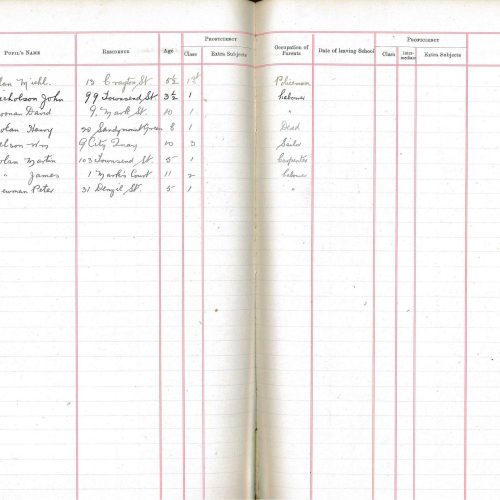 PROFICIENCY PROFICIENCY
PUPIL'S NAME RESIDENCE Age Class Extra Subjects Occupation of Parents Date of leaving School Class Inter-mediate Extra Subjects
lan Michl. 13 St 5½ 1st Policeman
icholson John 99 Townsend St 3½ 1 Labourer
oonan David 9. Mark St. 10 1 "
olan Henry 20 Sandymount Green 8 1 Dead
elson Wm 9 City Quay 10 3 Sailor
olan Martin 103 Townsend St. 5 1 Carpenter
" James 1 Mark's Court 11 2 Labourer
ewman Peter 31 Denzil St. 5 1 "